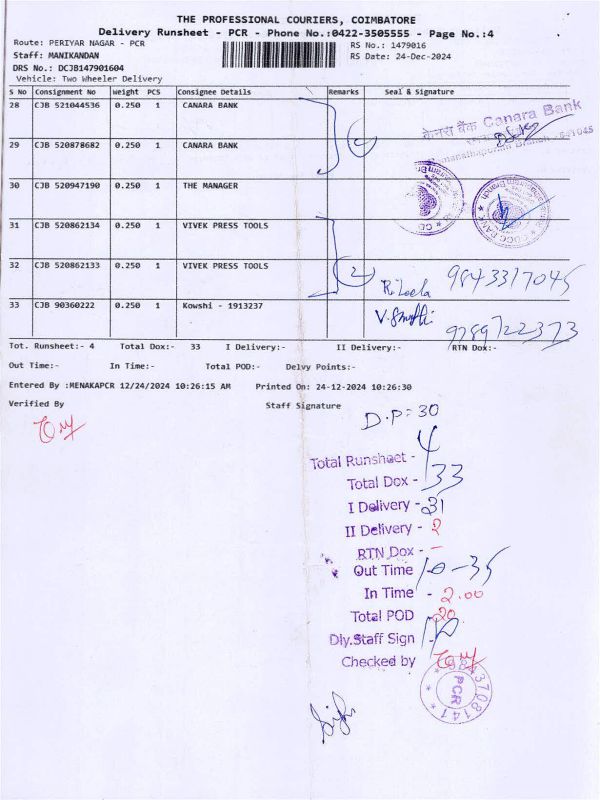 THE PROFESSIONAL COURIERS, COIMBATORE
Delivery Runsheet - PCR - Phone No.:0422-3505555 - Page No.:4
Route: PERIYAR NAGAR - PCR
RS No.: 1479016
Staff: MANIKANDAN
RS Date: 24-Dec-2024
DRS No.: DCJB147901604
Vehicle: Two Wheeler Delivery
S No Consignment No Weight PCS Consignee Details Remarks Seal & Signature
28 CJB 521044536 0.250 1 CANARA BANK
केनरा बैंक Canara Bank
29 CJB 520878682 0.250 1 CANARA BANK
Branch - 641045
30 CJB 520947190 0.250 1 THE MANAGER
31 CJB 520862134 0.250 1 VIVEK PRESS TOOLS
32 CJB 520862133 0.250 1 VIVEK PRESS TOOLS
2
R. Leela 9843317045
33 CJB 90360222 0.250 1 Kowshi - 1913237
9789722373
Tot. Runsheet:- 4 Total Dox:- 33 I Delivery:- II Delivery:- RTN Dox:-
Out Time:- In Time:- Total POD:- Delvy Points:-
Entered By :MENAKAPCR 12/24/2024 10:26:15 AM Printed On: 24-12-2024 10:26:30
Verified By Staff Signature
D.P:30
Total Runsheet - 4
Total Dox - 33
I Delivery - 31
II Delivery - 2
RTN Dox - –
Out Time 10-35
In Time - 2.00
Total POD - 20
Dly.Staff Sign
Checked by
PCR